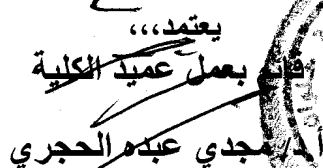 يعتمد،،،
قائم بعمل عميد الكلية
أ.د/ مجدي عبده الحجري